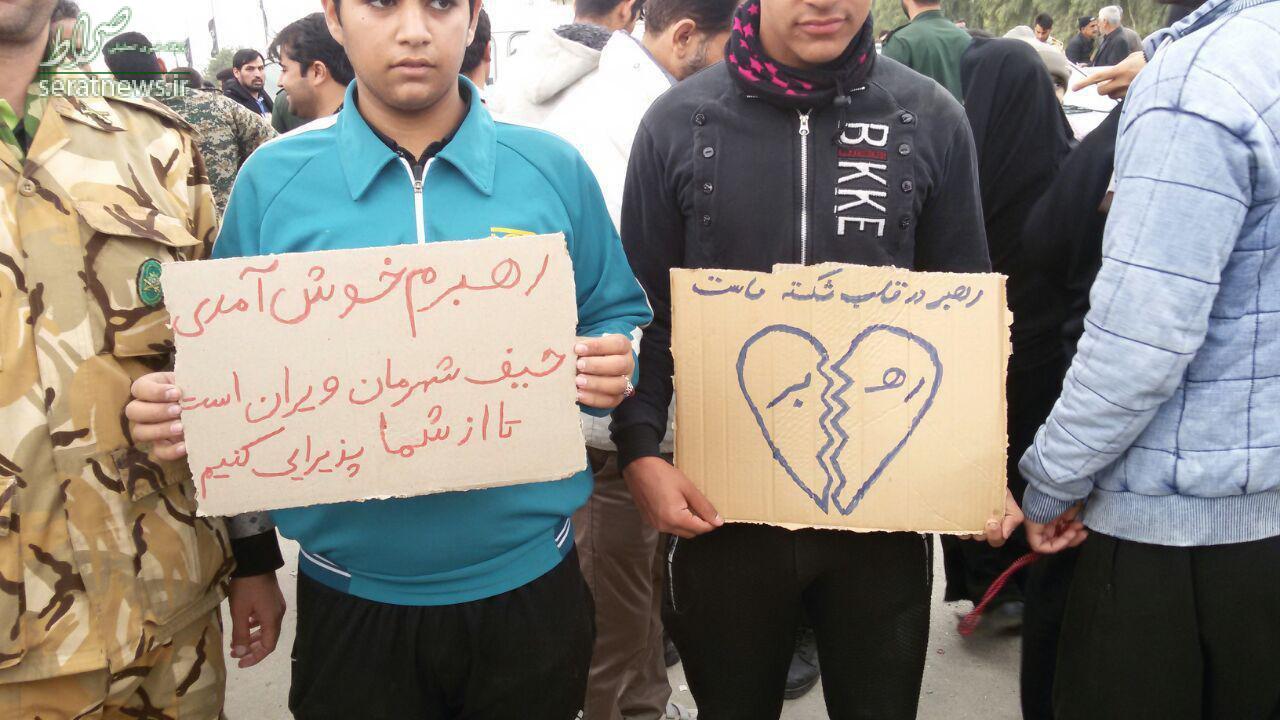 صراط
seratnews.ir
رهبرم خوش آمدی
حیف شهرمان ویران است
تا از شما پذیرایی کنیم
BKKE
رهبر در قلب شکسته ماست
رهـ بر